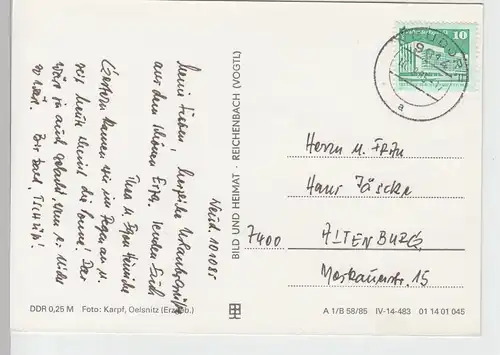 Neud. 10.10.85
Meine Lieben, herzliche Urlaubsgrüße
aus dem schönen Erzg. senden Euch
Thea u. Egon Heinicke
Gestern kamen wir im Regen an u.
seit heute scheint die Sonne! Das
wär ja auch gelacht, wenn's nicht
so wär. Bis bald, Tschüß!
BILD UND HEIMAT · REICHENBACH (VOGTL)
10
9304
a
Herrn u. Frau
Hans Jäschke
7400 ALTENBURG
Moskauerstr. 15
DDR 0,25 M Foto: Karpf, Oelsnitz (Erzgeb.)
A 1/B 58/85 IV-14-483 01 14 01 045